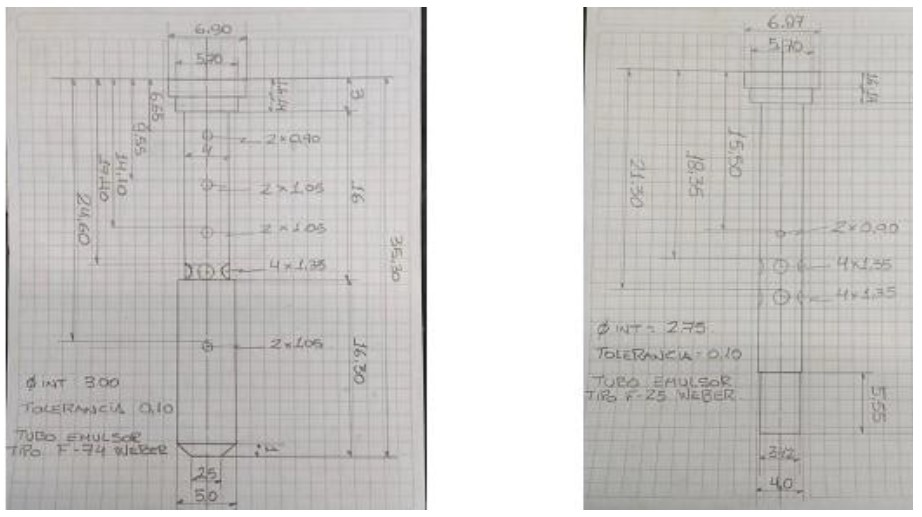 6.90
5,70
1.614
3
6.65
9.55
14,10
17,40
24,60
4
2x0,90
2x1.05
2x1.05
4x1,35
2x1.05
16
35,30
16.30
Ø INT: 3.00
TOLERANCIA 0,10
TUBO EMULSOR
TIPO F-74 WEBER
1
2.5
5.0
6.97
5,70
15,50
18,35
21.30
2x0,90
4x1,35
4x1,35
Ø INT= 2.75
TOLERANCIA= 0,10
TUBO EMULSOR
TIPO F-25 WEBER
5,55
4.0